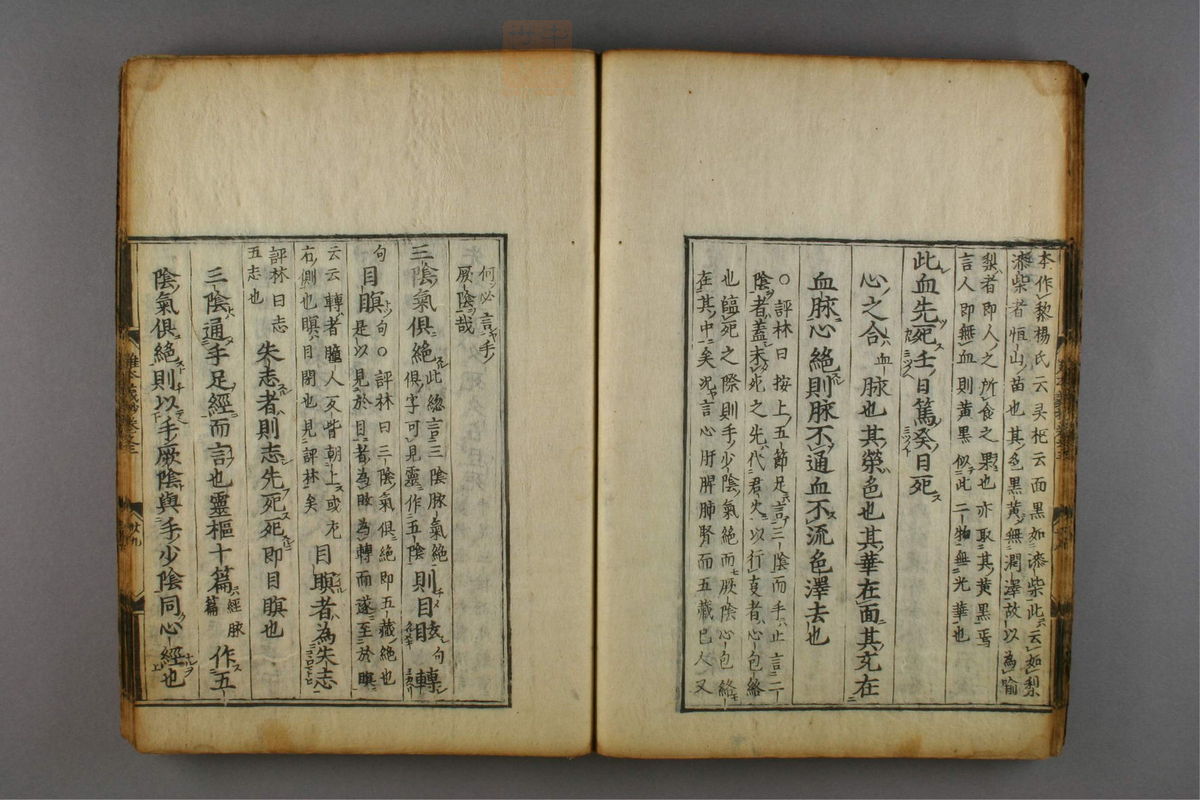 本作黎楊氏云又杝云面黒如漆柴此云如梨
漆柴者恒山苗也其色黒黄無潤澤故以為喻
梨者即人之所食之果也亦取其黄黒焉
言人即無血則黄黒似此二物無光華也
此血先死壬日篤癸日死
心之合血脉也其榮色也其華在面其充在
血脉心絶則脉不通血不流色澤去也
〇評林曰按上五節足言三陰而手止言二
陰者蓋未死之先代君火以行㕝者心包絡
也臨死之際則手少陰氣絶而厥陰心包絡
在其中矣况言心肝脾肺腎而五藏已人又
何必言手
厥陰哉
三陰氣俱絶此総言三陰脉氣絶
俱字可見靈作五陰則目眩句目轉
句目瞑句〇評林曰三陰氣俱絶即五藏絶也
是以見於目者為眩為轉而遂至於瞑
云云轉者朣人又皆朝上或左
右側也瞑目閉也見評林矣目瞑者為失志
評林曰志
五志也失志者則志先死死即目瞑也
三陰通手足經而言也靈樞十篇經脉
篇作五
陰氣俱絶則以手厥陰與手少陰同心經也